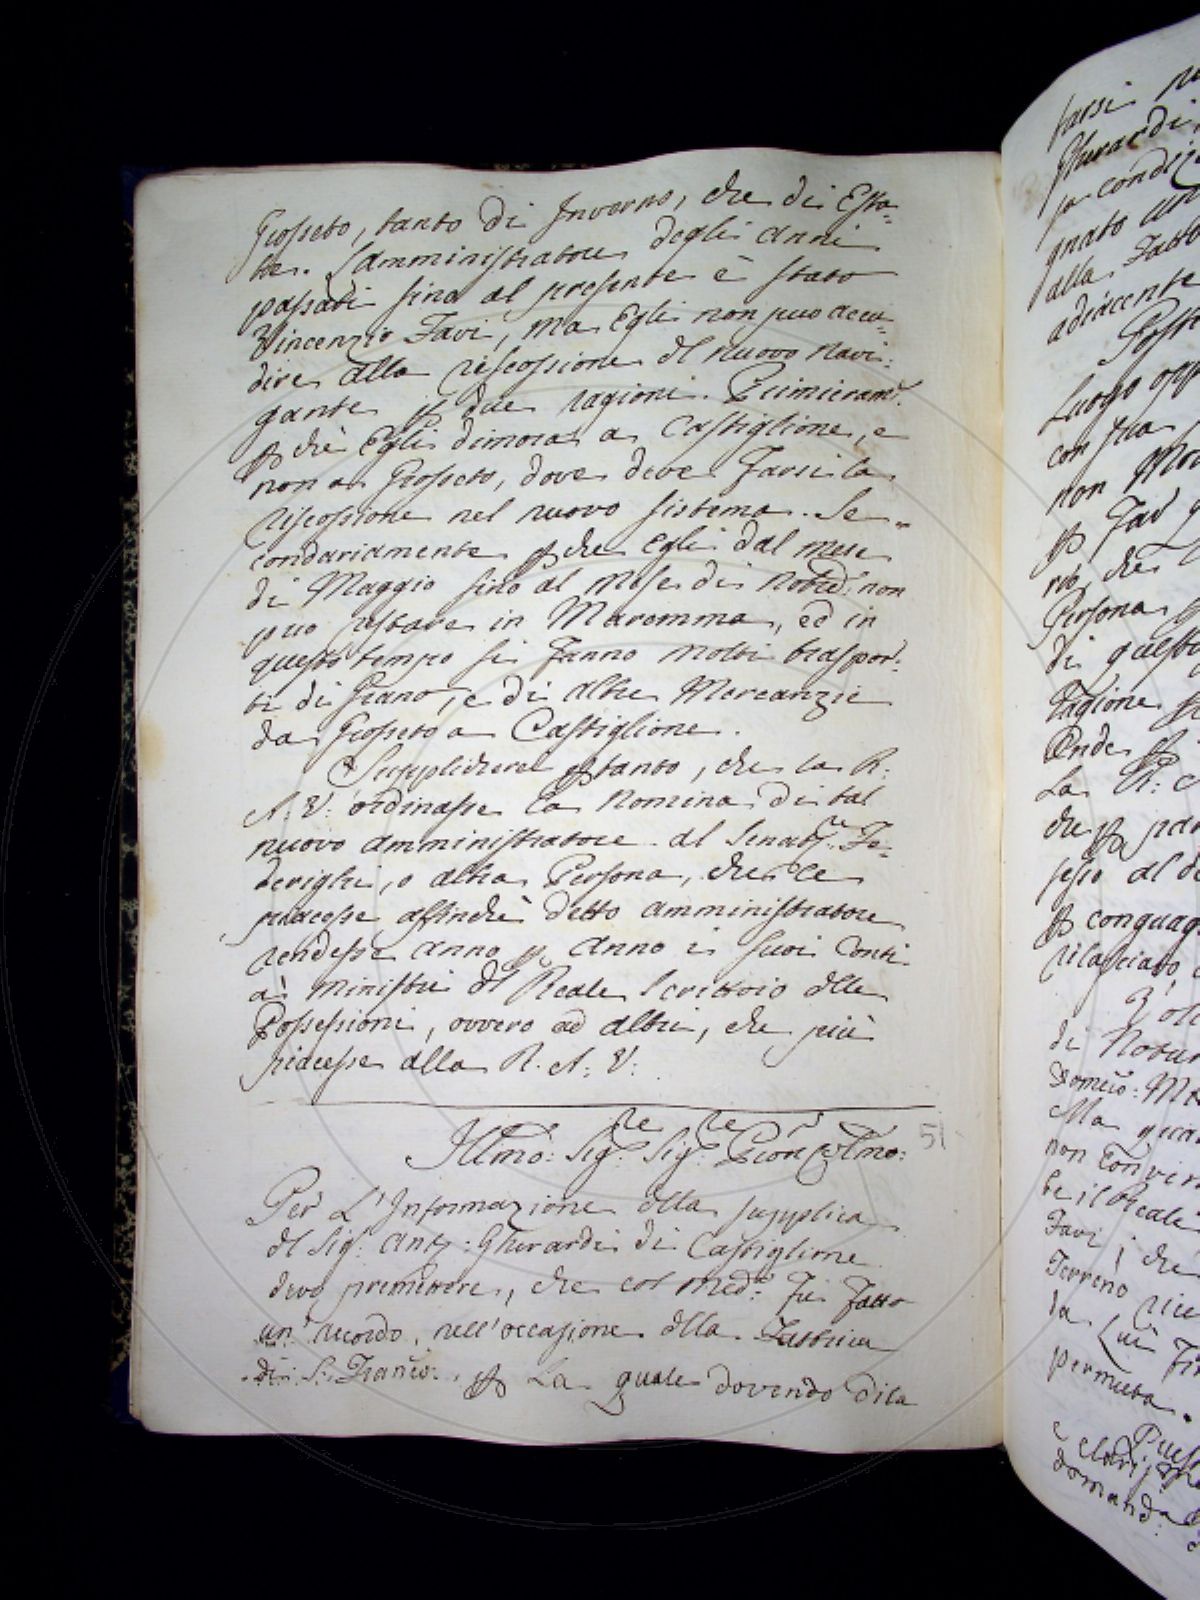 Grosseto, tanto di Inverno, che di Esta=
te. L'amministratore degli anni
passati sino al presente è stato
Vincenzio Favi, ma Egli non può accu=
dire alla riscossione del nuovo navi=
gante per due ragioni. Primieramte.
perchè Egli dimora a Castiglione, e
non a Grosseto, dove deve Farsi la
riscossione nel nuovo sistema. Se=
condariamente perche Egli dal mese
di Maggio sino al Mese di Nobre: non
può restare in Maremma, ed in
questo tempo si Fanno molti traspor=
ti di Grano, e di altre Mercanzie
da Grosseto a Castiglione.
Supplicherei pertanto, che la R:
A: V: ordinasse la Nomina di tal
nuovo amministratore al Senatre. Fe=
derighi, o altra Persona, che le
piacesse affinchè detto amministratore
rendesse anno per anno i suoi Conti
ai Ministri del Reale Scrittoio delle
Possessioni, ovvero ad altri, che più
piacesse alla R. A: V:
51
Illmo: Sigre Sigre Pron Colmo:
Per L'Informazione della supplica
del Sig: Anto: Gherardi di Castiglione
devo premettere, che col medmo: Fu Fatto
un ricordo, nell'occasione della Fabbrica
di S: Franco:, per La quale dovendo di la
farsi
Gherardi,
gnato
alla Fatto
adiacente
Luogo opp
con sua
non
per Far
rio, che
Persona
di questo
ragione
Onde per
La R: A
che per
per conguag
rilasciato
di
Domco: M
Ma
non convin
te il Reale
Favi, che
Terreno
da Lui
permuta.
domand: